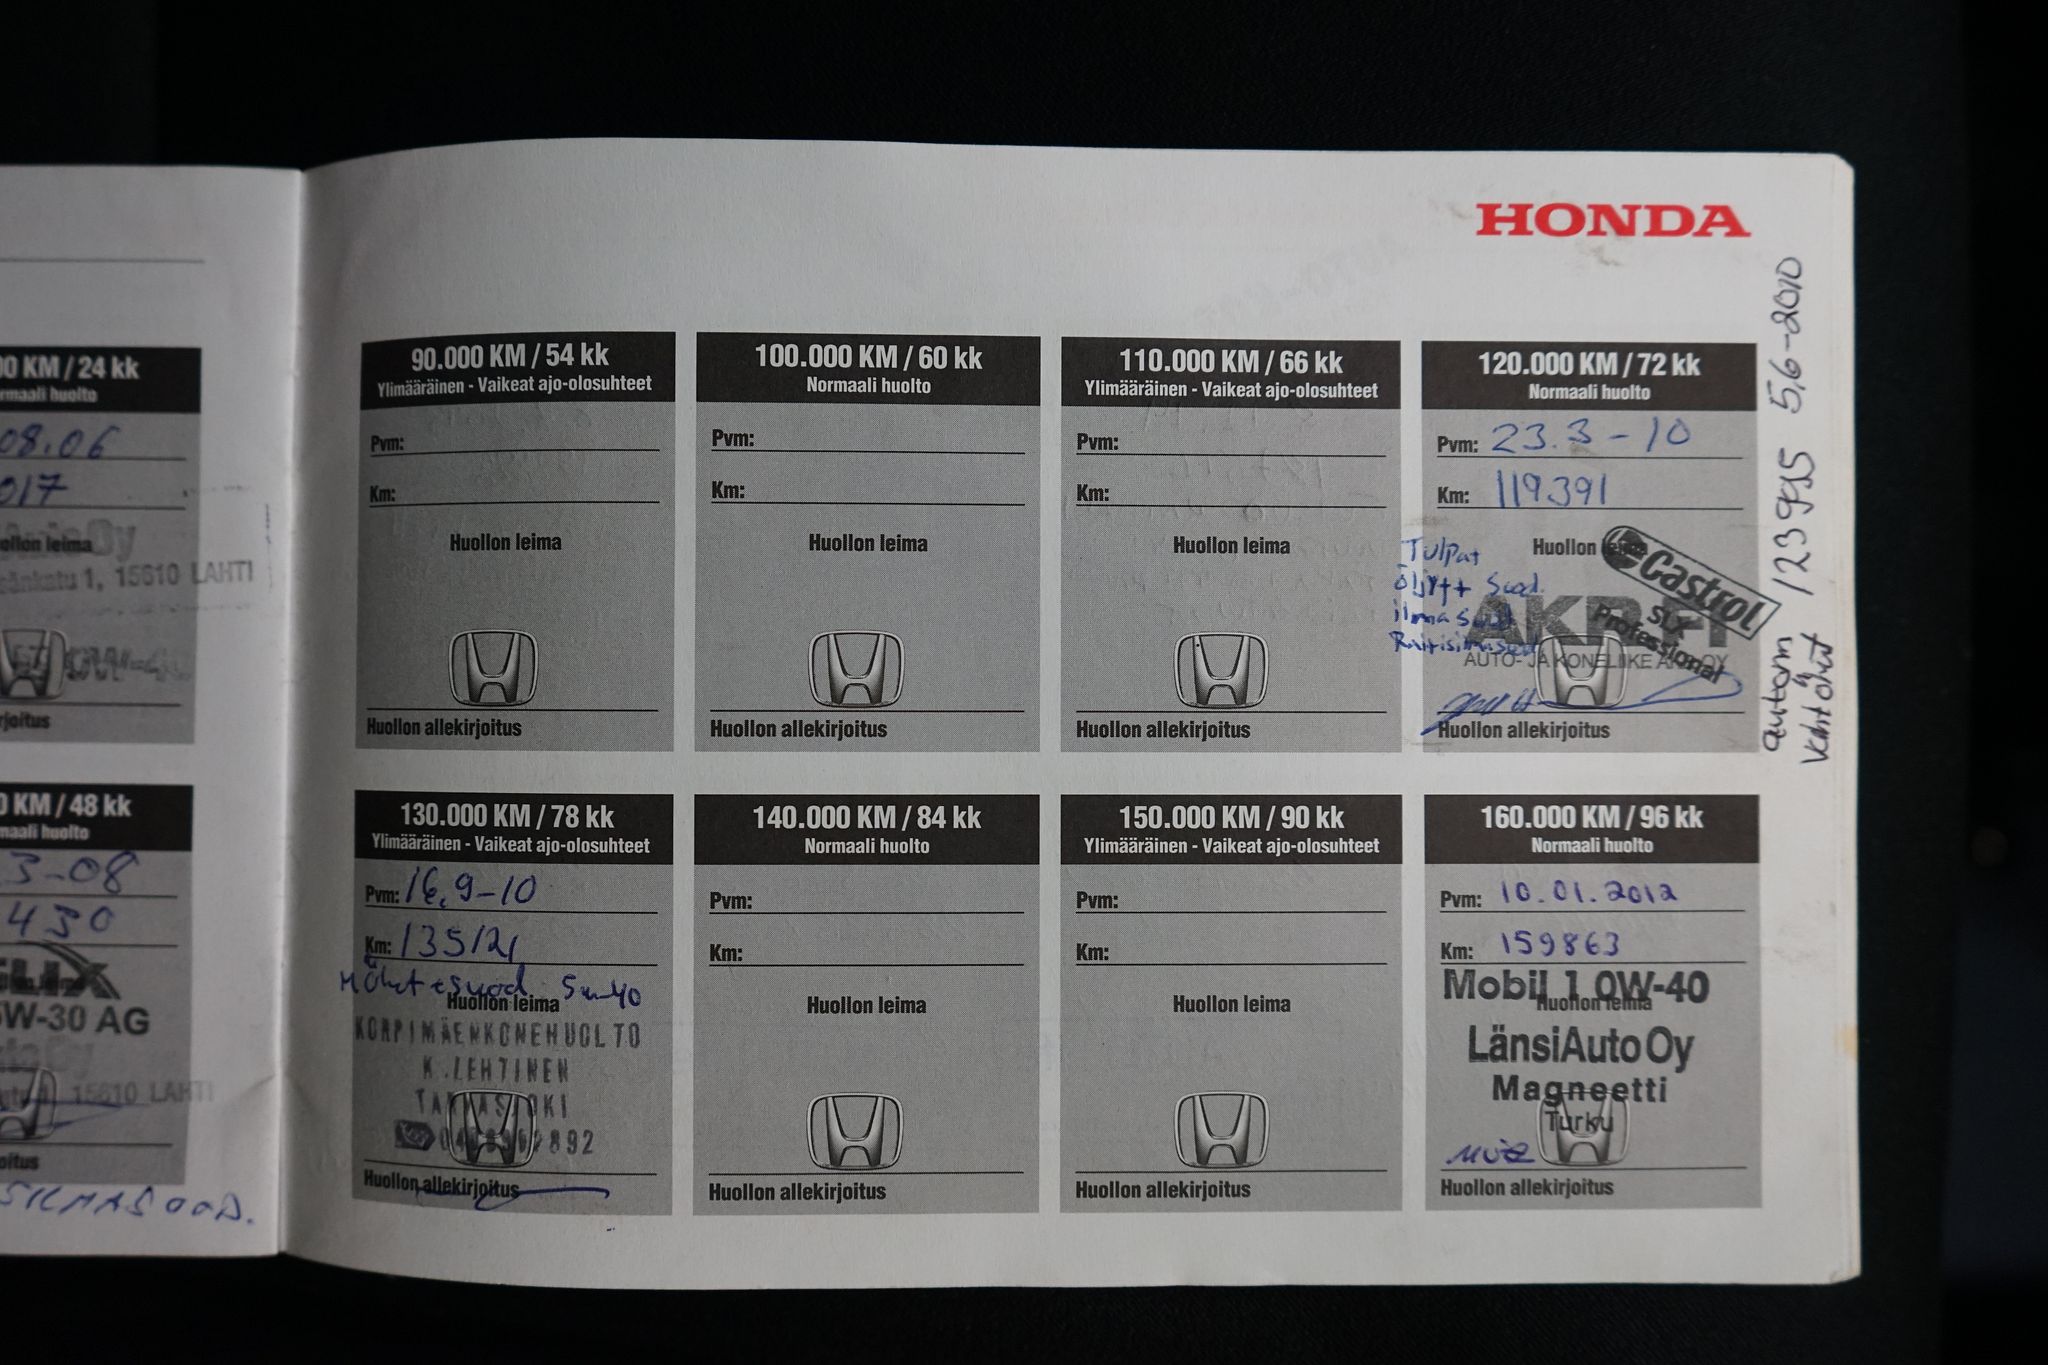 HONDA
00 KM / 24 kk
rmaali huolto
08.06
017
ollon leima
15610 LAHTI
0W-40
rjoitus
0 KM / 48 kk
maali huolto
3-08
430
5W-30 AG
15610 LAHTI
oitus
90.000 KM / 54 kk
Ylimääräinen - Vaikeat ajo-olosuhteet
Pvm:
Km:
Huollon leima
Huollon allekirjoitus
100.000 KM / 60 kk
Normaali huolto
Pvm:
Km:
Huollon leima
Huollon allekirjoitus
110.000 KM / 66 kk
Ylimääräinen - Vaikeat ajo-olosuhteet
Pvm:
Km:
Huollon leima
Huollon allekirjoitus
120.000 KM / 72 kk
Normaali huolto
Pvm: 23.3-10
Km: 119391
Huollon
Castrol
SLX
Professional
Tulpat
Öljyt+ Suod.
ilmasuod
AUTO- JA KONELIIKE OY
Huollon allekirjoitus
autom 5,6-2010
130.000 KM / 78 kk
Ylimääräinen - Vaikeat ajo-olosuhteet
Pvm: 16.9-10
Km: 135121
5w-40
Huollon leima
KORPIMÄENKONEHUOLTO
K.LEHTINEN
Huollon allekirjoitus
140.000 KM / 84 kk
Normaali huolto
Pvm:
Km:
Huollon leima
Huollon allekirjoitus
150.000 KM / 90 kk
Ylimääräinen - Vaikeat ajo-olosuhteet
Pvm:
Km:
Huollon leima
Huollon allekirjoitus
160.000 KM / 96 kk
Normaali huolto
Pvm: 10.01.2012
Km: 159863
Mobil 1 0W-40
Huollon leima
LänsiAuto Oy
Magneetti
Turku
Huollon allekirjoitus